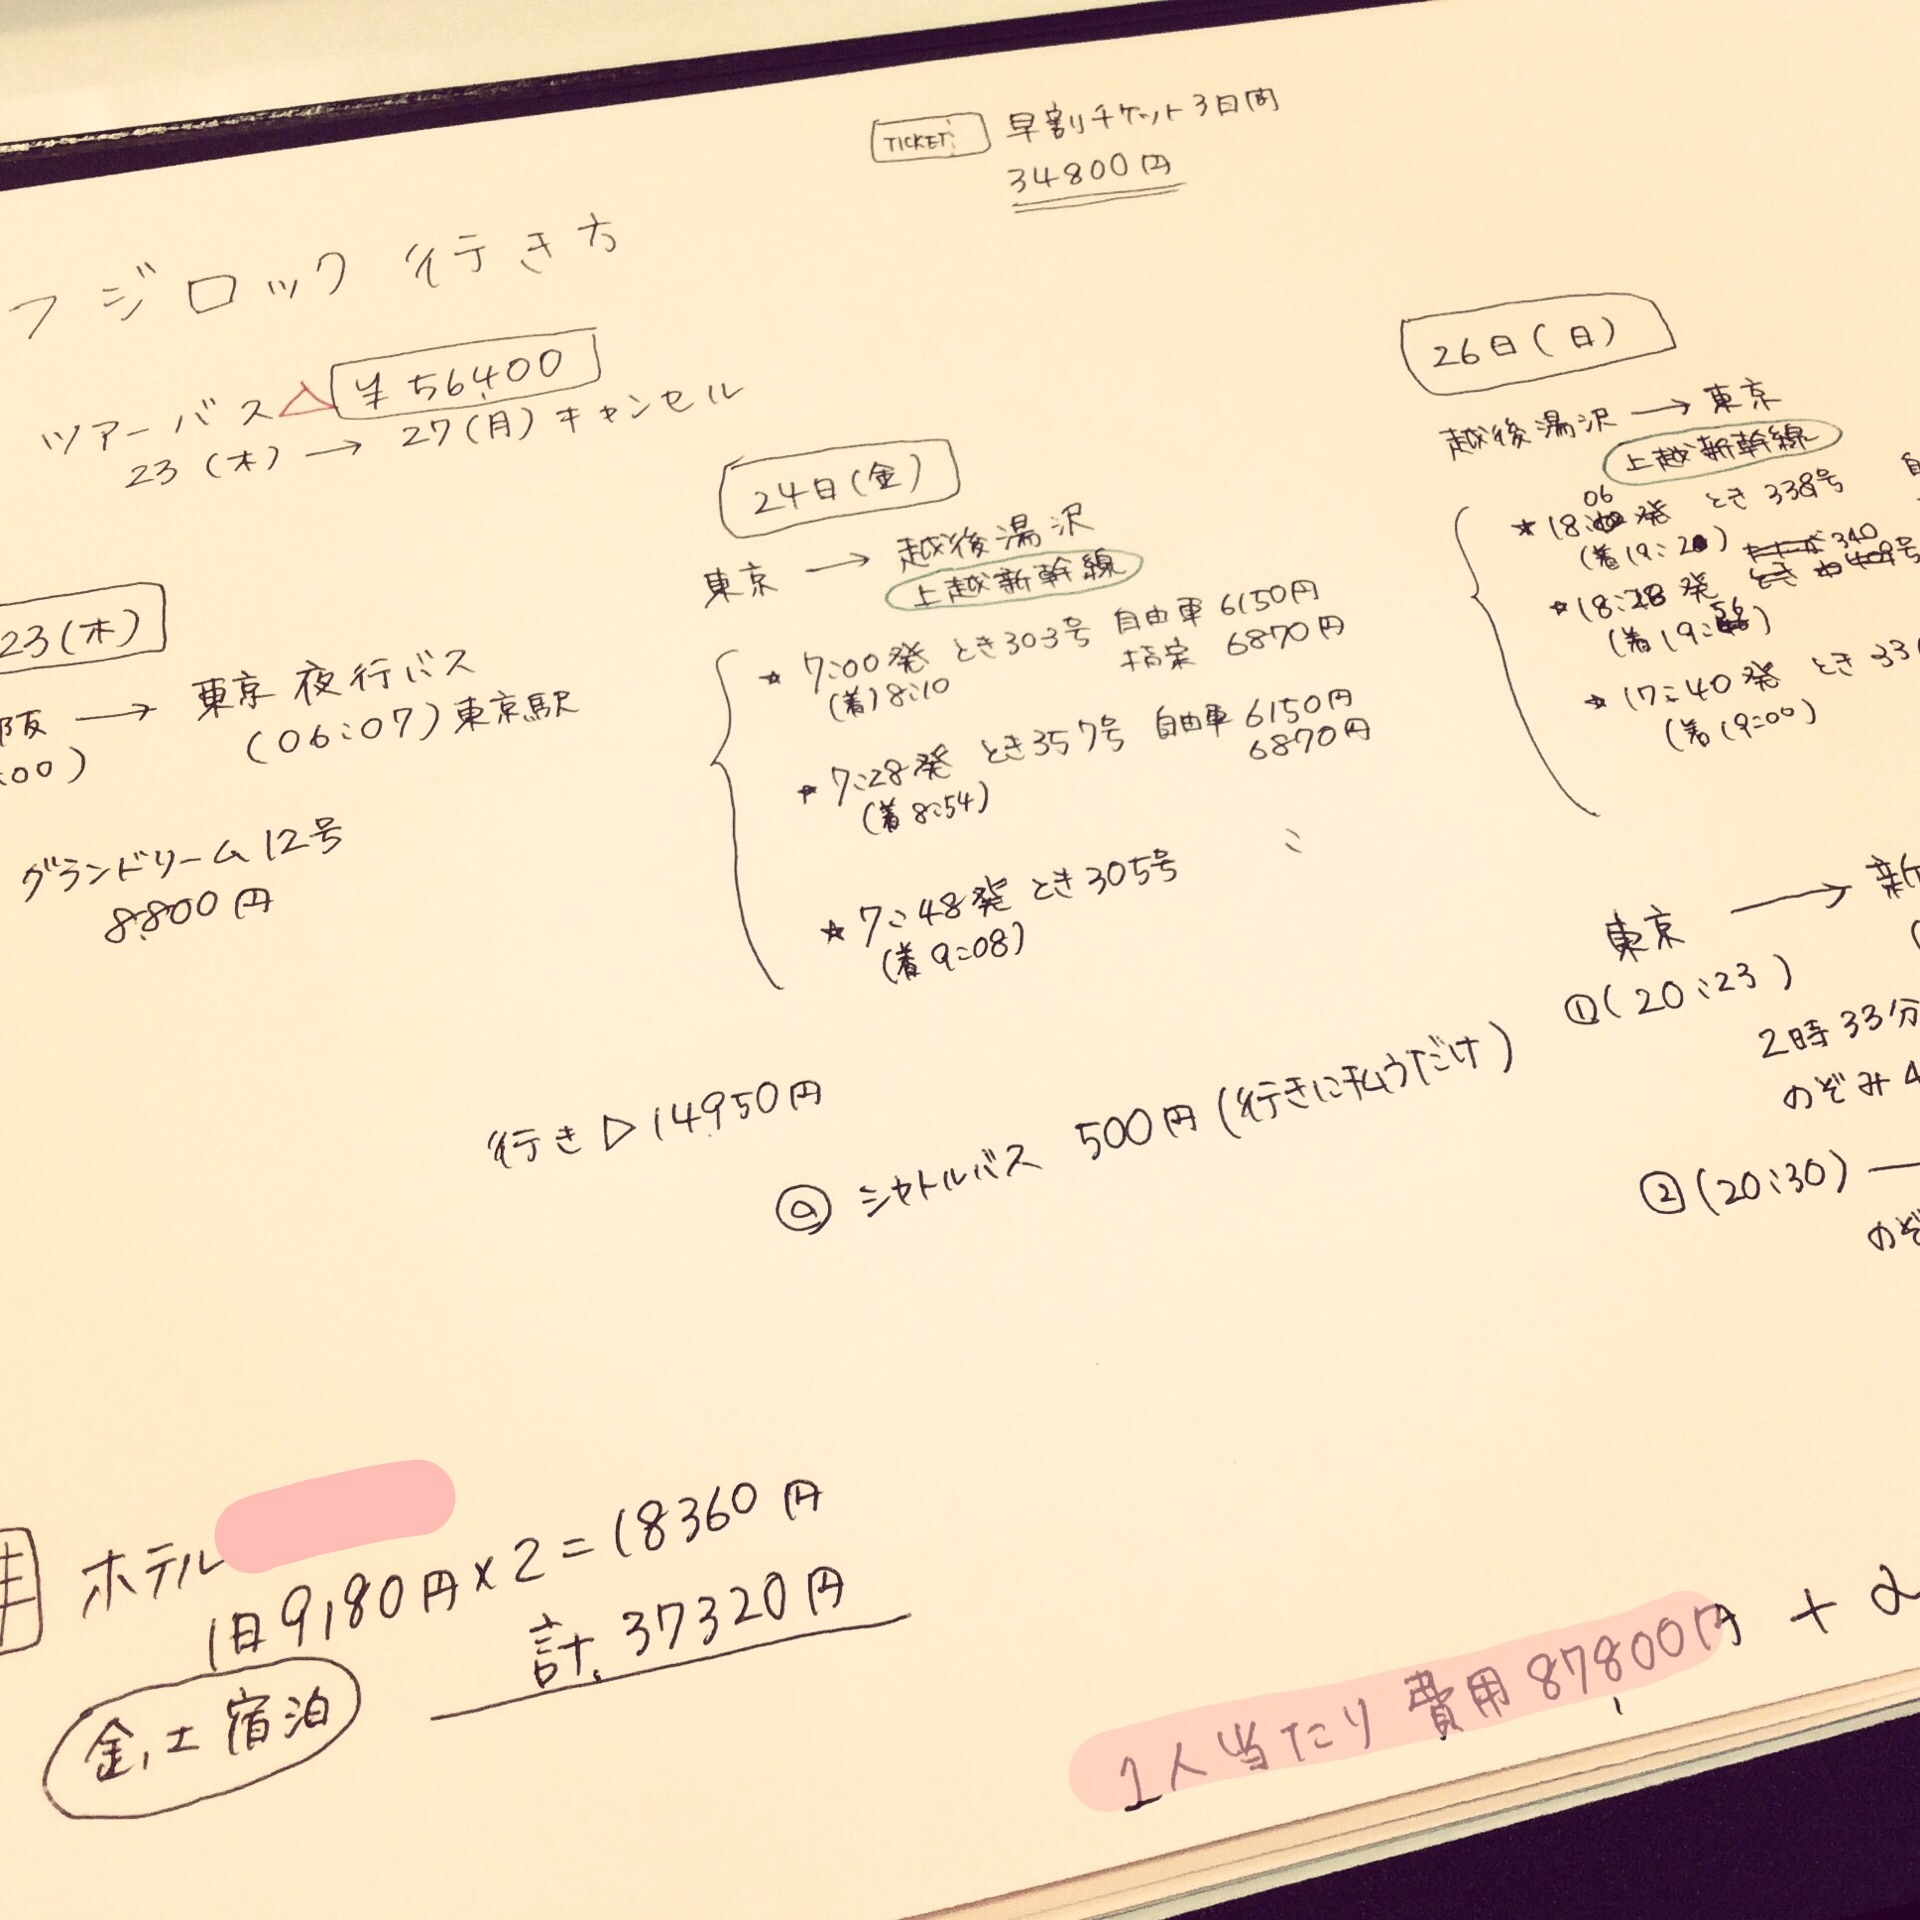 TICKET:
早割チケット3日間
34800円
フジロック 行き方
ツアーバス △ ¥56,400
23(木) → 27(月) キャンセル
23(木)
阪 → 東京 夜行バス
:00) (06:07) 東京駅
グランドリーム12号
8,800円
24日(金)
東京 → 越後湯沢
上越新幹線
★ 7:00発 とき303号 自由車 6150円
(着) 8:10 指定 6870円
★ 7:28発 とき357号 自由車 6150円
(着 8:54) 6870円
★ 7:48発 とき305号
(着 9:08)
26日(日)
越後湯沢 → 東京
上越新幹線
06
★ 18: 発 とき 338号
(着 19:20)
340
★ 18:28発 号
(着 19:56)
★ 17:40発 とき 33
(着 19:00)
東京 → 新
①(20:23)
2時33分
のぞみ 4
②(20:30) —
のぞ
行き ▷ 14,950円
@ シャトルバス 500円 (行きに払うだけ)
ホテル
1日9,180円×2=18360円
計. 37320円
金,土 宿泊
1人当たり 費用 87800円 + α